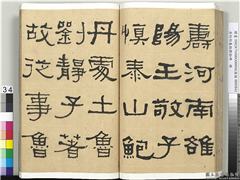 壽河南雒
陽王敬子
慎泰山鮑
丹處士魯
劉靜子著
故從事魯
34